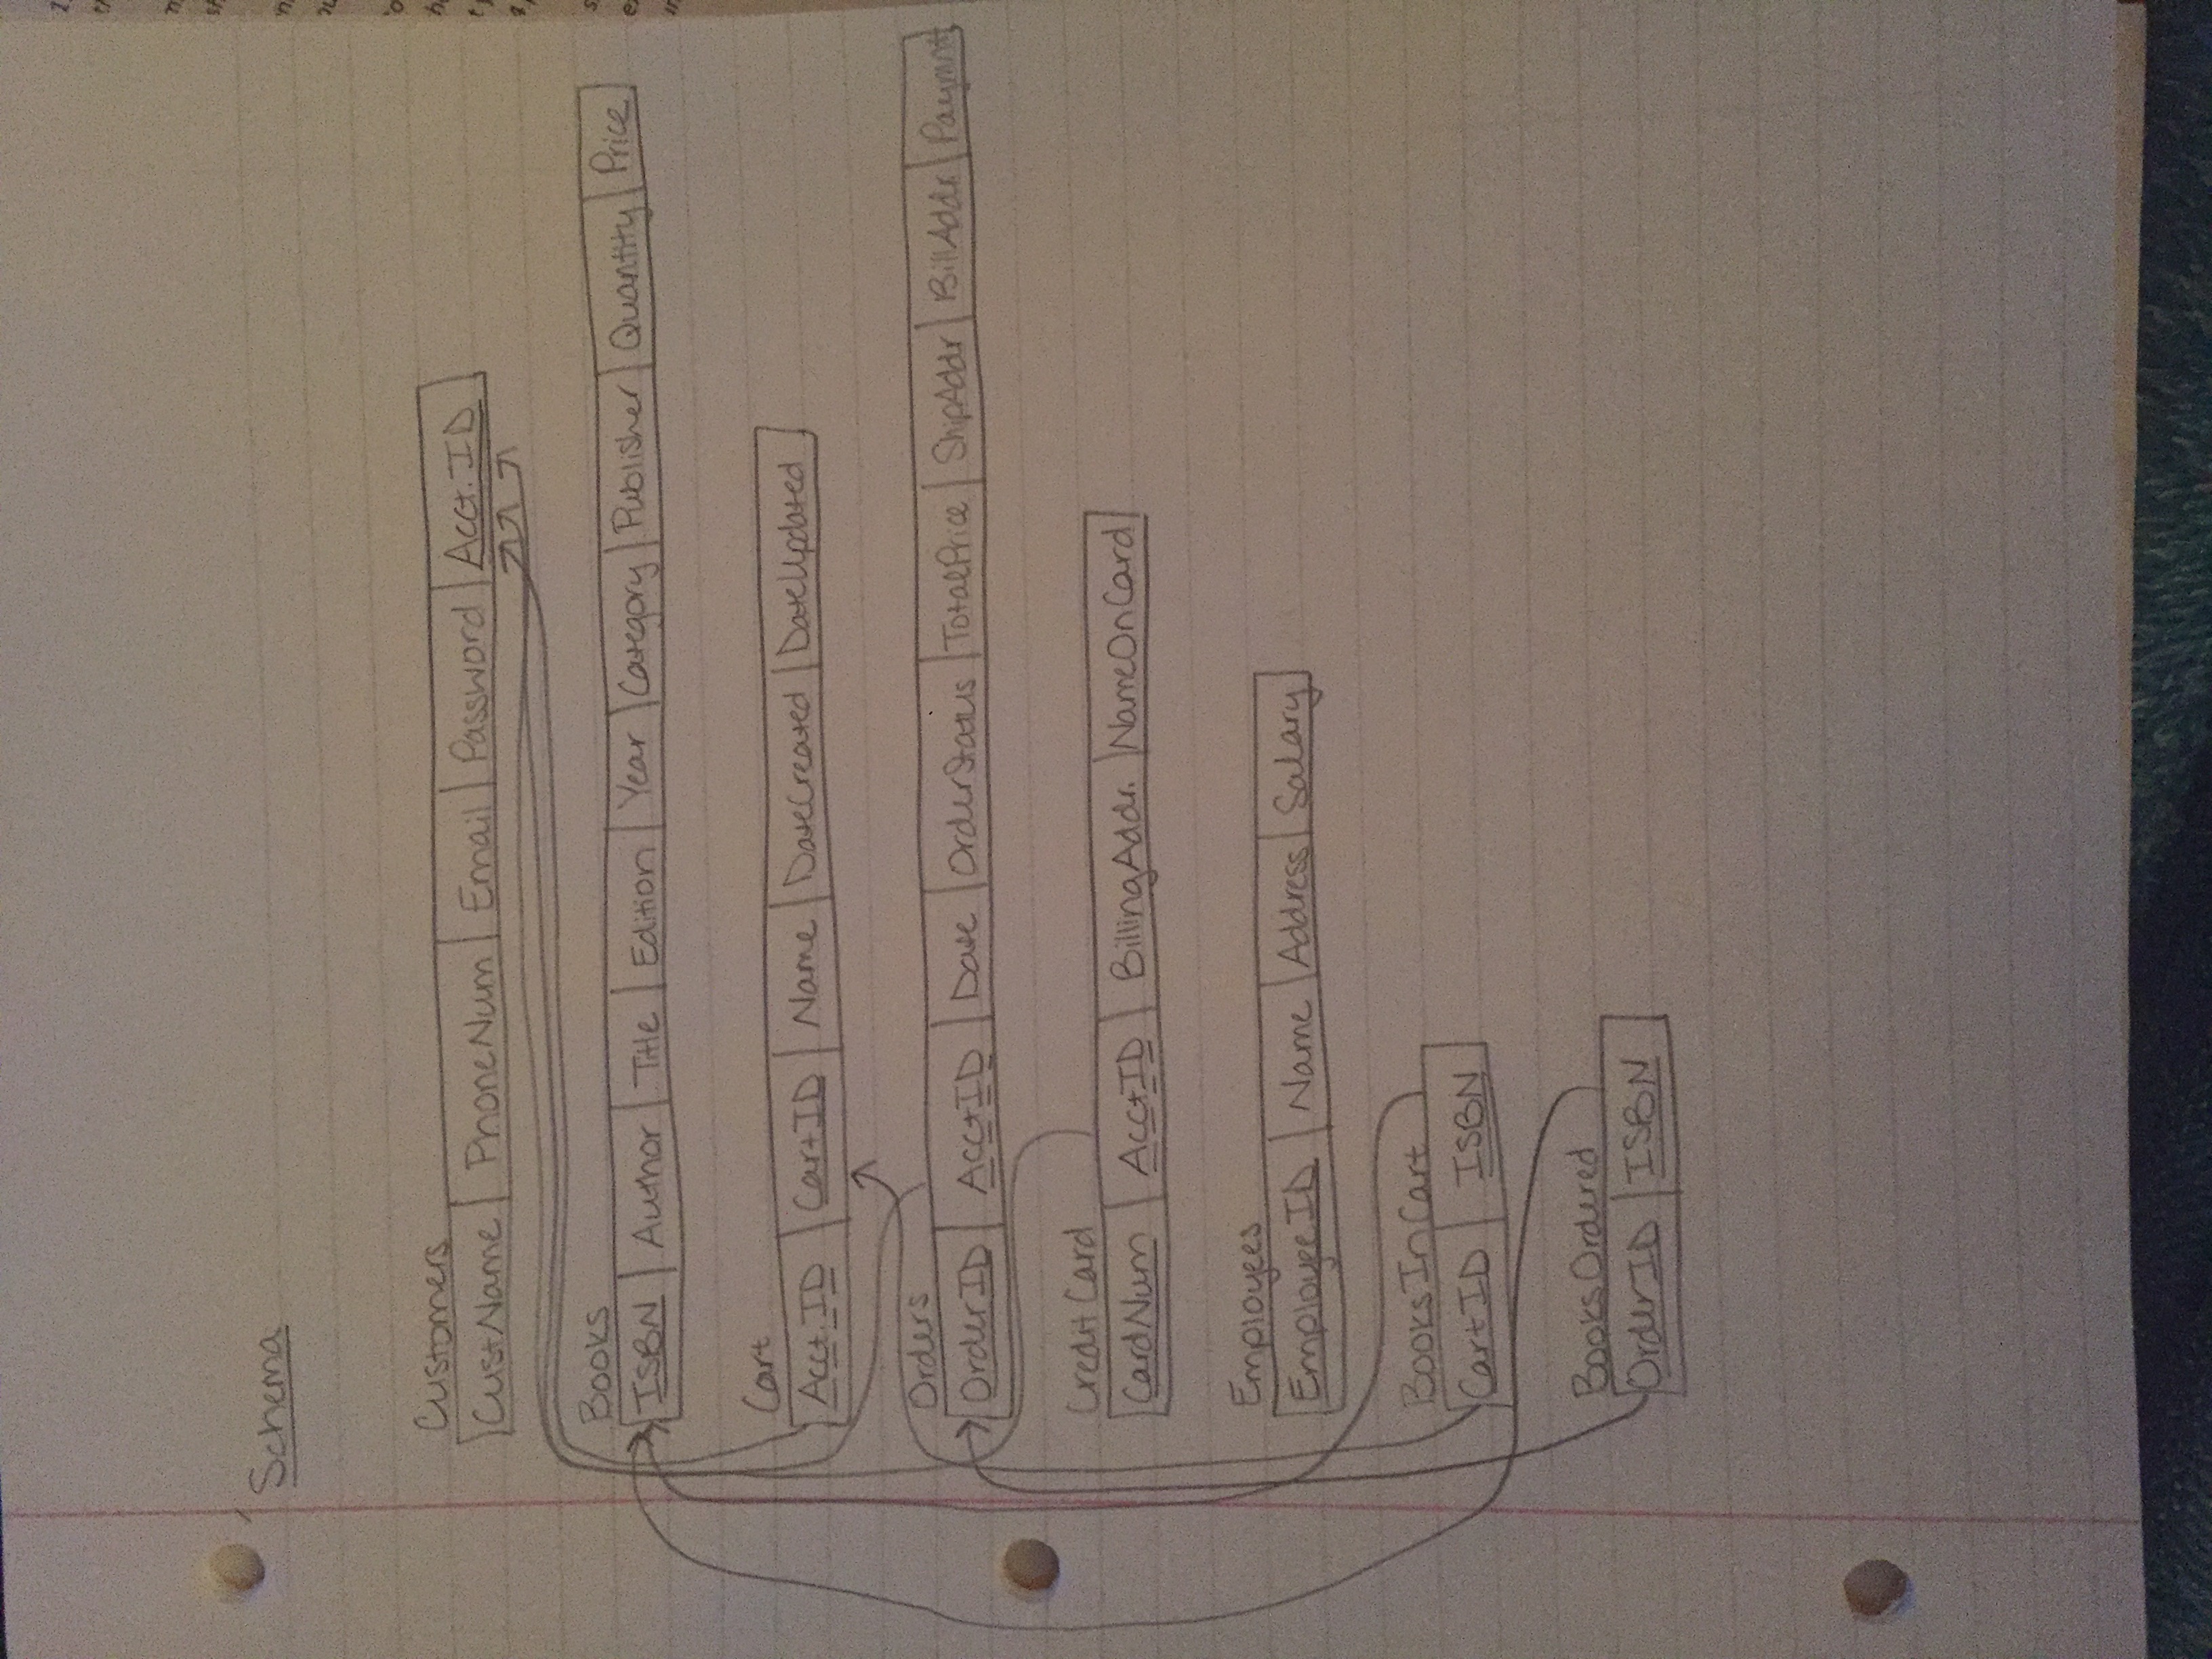 Schema
Customers
CustName PhoneNum Email Password Acct.ID
Books
ISBN Author Title Edition Year Category Publisher Quantity Price
Cart
Acct.ID CartID Name DateCreated DateUpdated
Orders
OrderID AcctID Date OrderStatus TotalPrice ShipAddr BillAddr. Paymnt
Credit Card
CardNum AcctID BillingAddr. NameOnCard
Employees
EmployeeID Name Address Salary
BooksInCart
CartID ISBN
BooksOrdered
OrderID ISBN